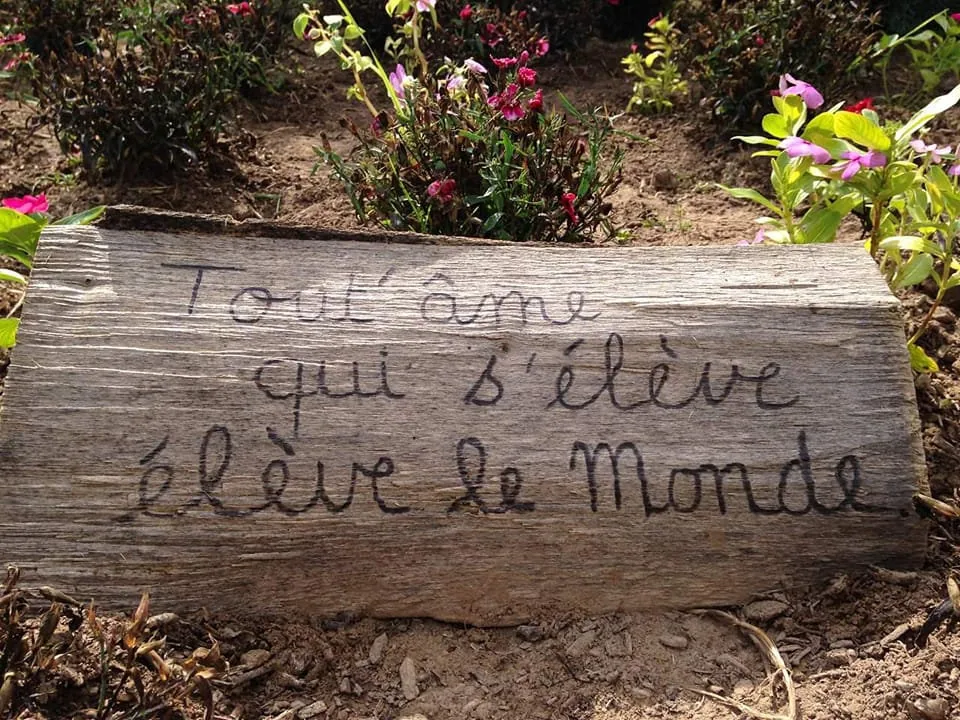 Tout' âme
qui s'élève
élève le Monde.